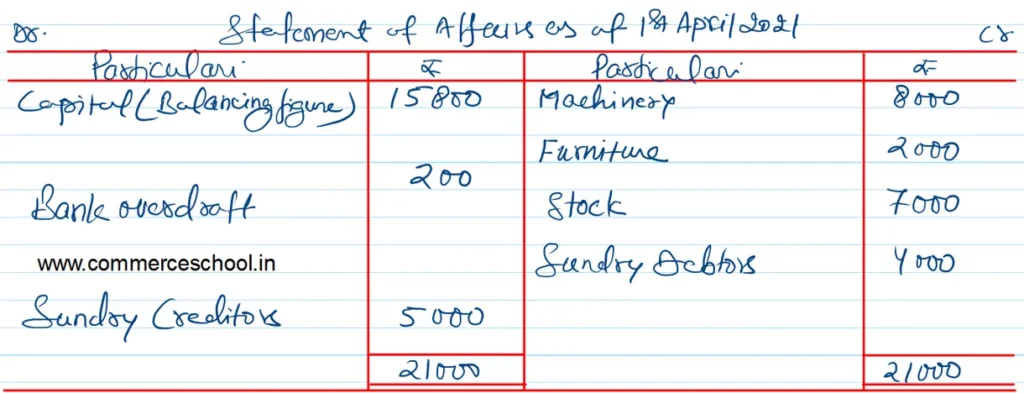 Dr. Statement of Affairs as of 1st April 2021 Cr
Particulars ₹ Particulars ₹
Capital (Balancing figure) 15800 Machinery 8000
Furniture 2000
200
Bank overdraft Stock 7000
www.commerceschool.in Sundry Debtors 4000
Sundry Creditors 5000
21000 21000